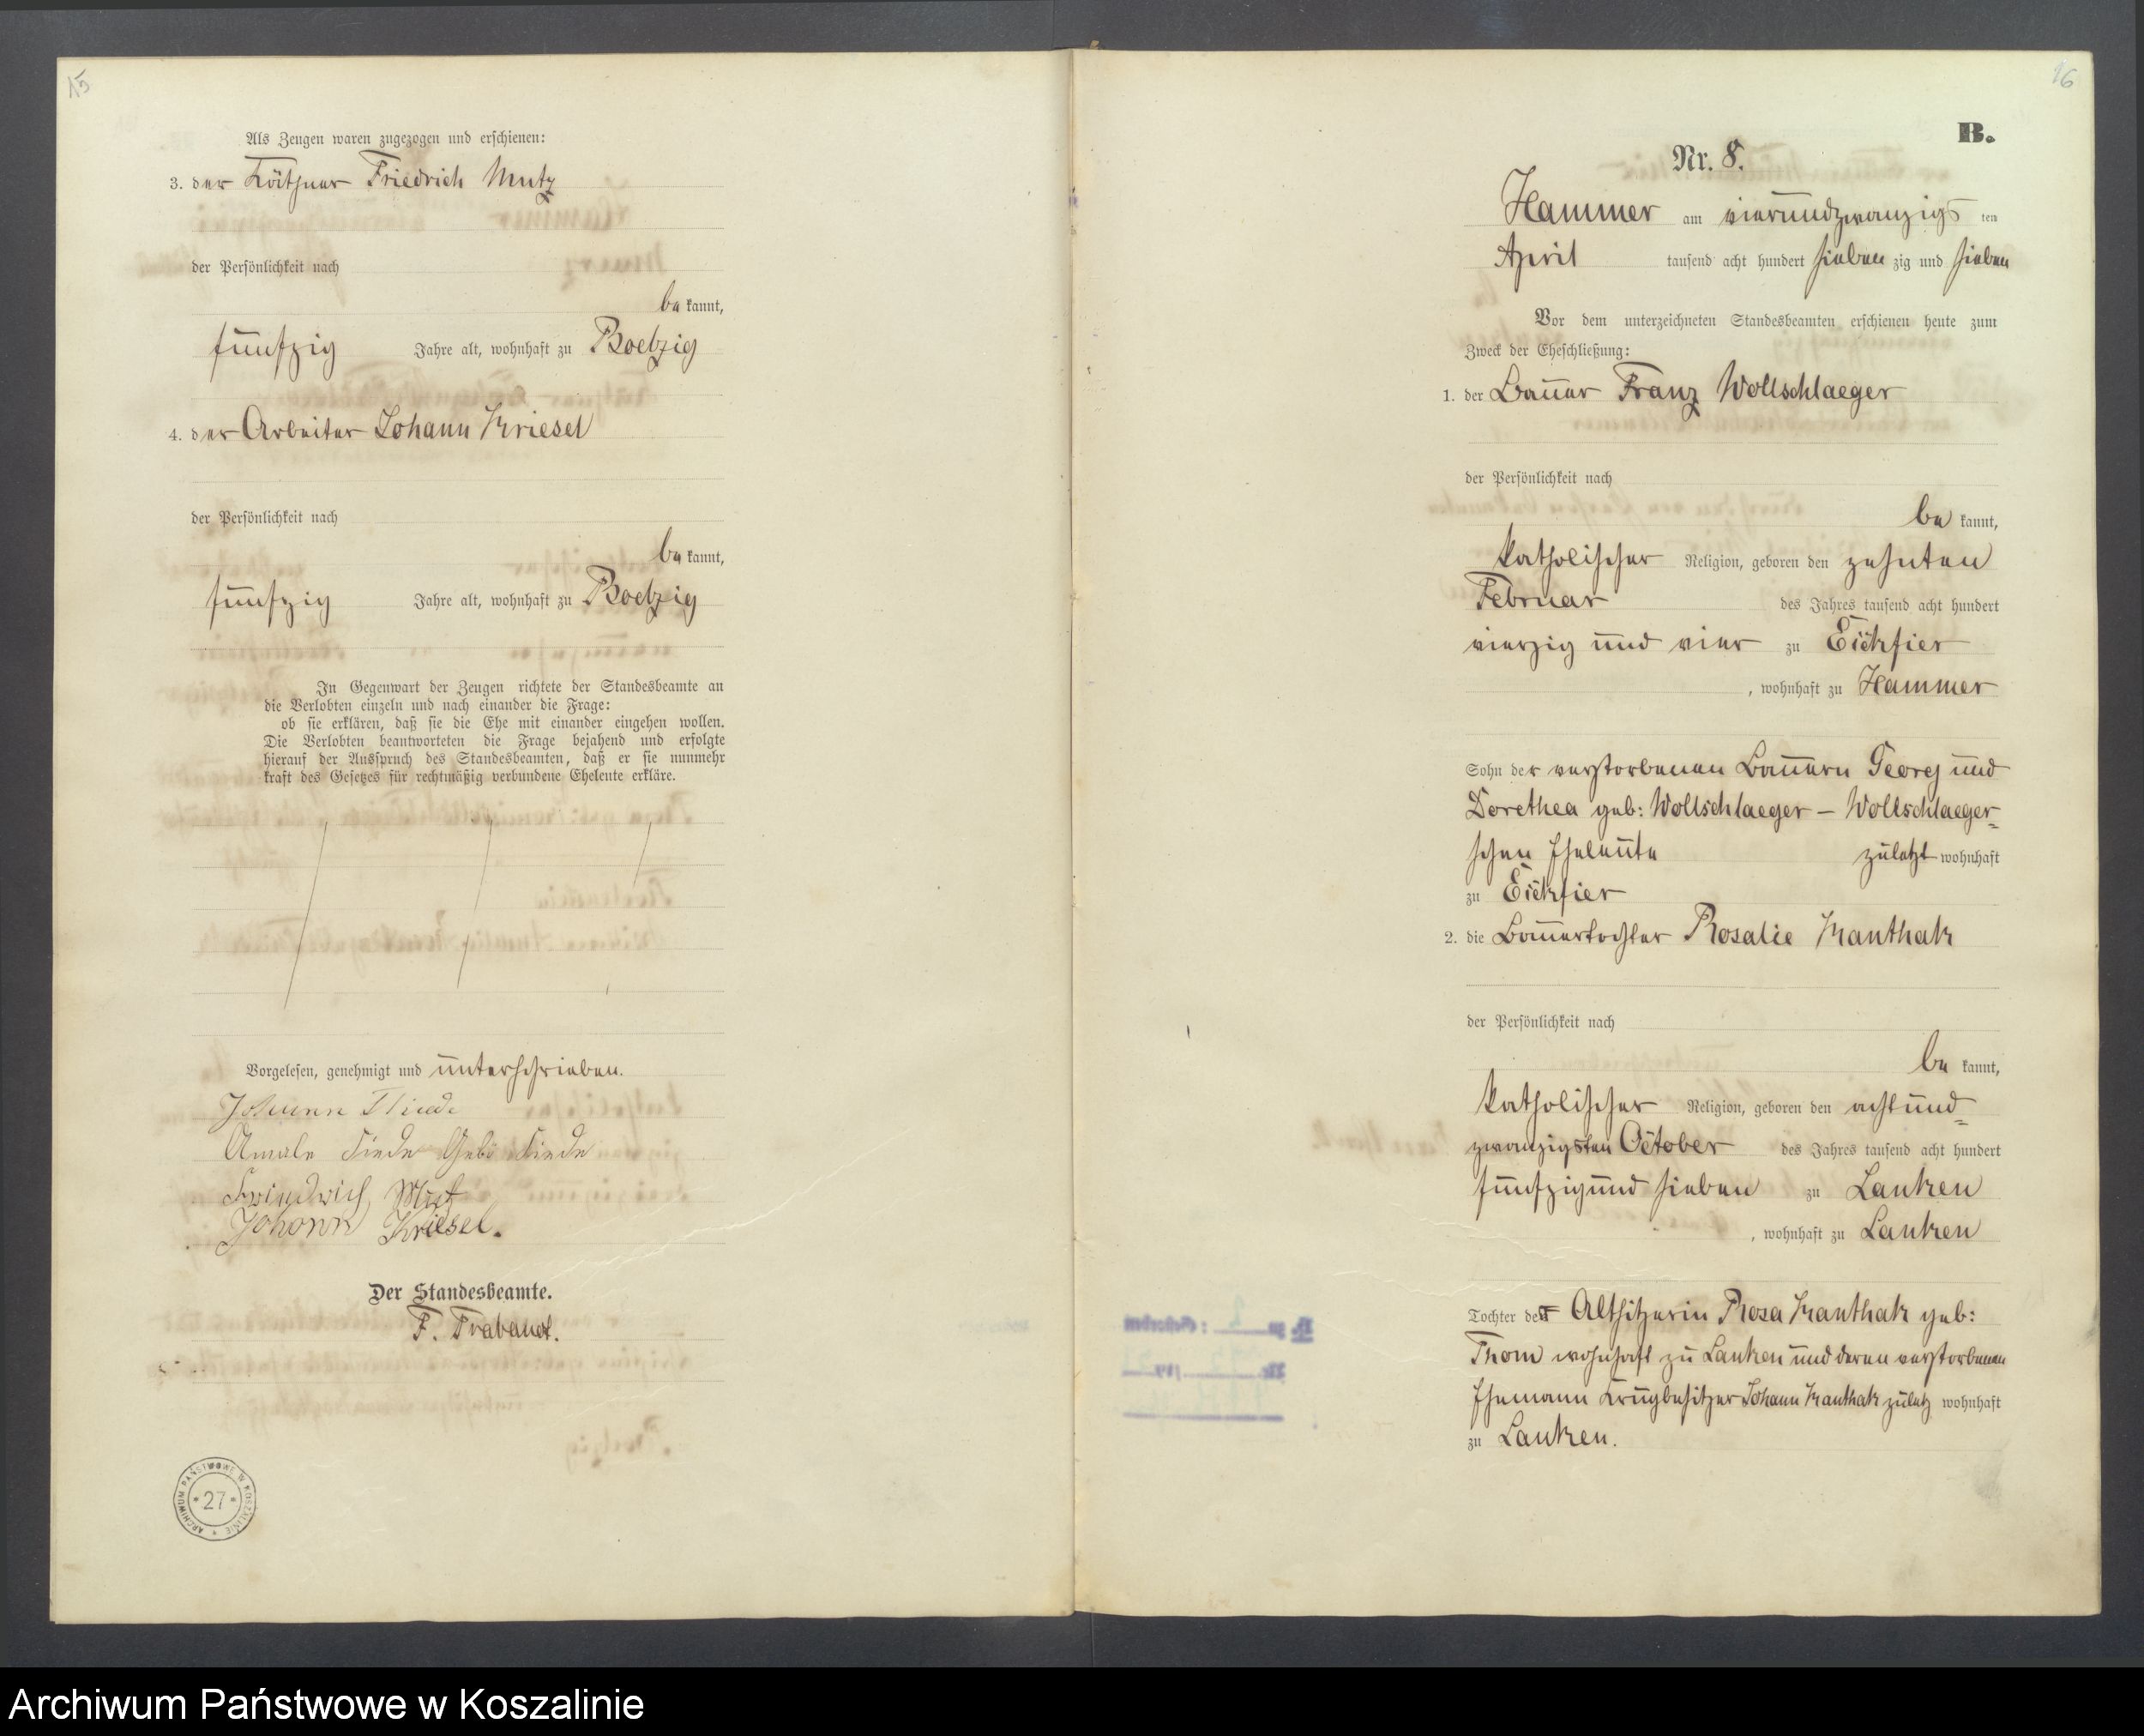 15
Als Zeugen waren zugezogen und erschienen:
3. der Käthner Friedrich Mutz
der Persönlichkeit nach
bekannt,
fünfzig Jahre alt, wohnhaft zu Boetzig
4. der Arbeiter Johann Kriesel
der Persönlichkeit nach
bekannt,
fünfzig Jahre alt, wohnhaft zu Boetzig
In Gegenwart der Zeugen richtete der Standesbeamte an
die Verlobten einzeln und nach einander die Frage:
ob sie erklären, daß sie die Ehe mit einander eingehen wollen.
Die Verlobten beantworteten die Frage bejahend und erfolgte
hierauf der Ausspruch des Standesbeamten, daß er sie nunmehr
kraft des Gesetzes für rechtmäßig verbundene Eheleute erkläre.
Vorgelesen, genehmigt und unterschrieben.
Johann
Geb
Friedrich
Johann Kriesel.
Der Standesbeamte.
F. Trabandt.
ARCHIWUM PAŃSTWOWE W KOSZALINIE
* 27 *
16
B.
Nr. 8.
Hammer am vierundzwanzigsten
April tausend acht hundert siebenzig und sieben
Vor dem unterzeichneten Standesbeamten erschienen heute zum
Zweck der Eheschließung:
1. der Bauer Franz Wollschlaeger
der Persönlichkeit nach
bekannt,
katholischer Religion, geboren den zehnten
Februar des Jahres tausend acht hundert
vierzig und vier zu Eickfier
, wohnhaft zu Hammer
Sohn der verstorbenen Bauern Georg und
Dorethea geb: Wollschlaeger – Wollschlaeger=
schen Eheleute zuletzt wohnhaft
zu Eickfier
2. die Bauertochter Rosalie Kanthak
der Persönlichkeit nach
bekannt,
katholischer Religion, geboren den achtund=
zwanzigsten October des Jahres tausend acht hundert
fünfzigund sieben zu Lanken
, wohnhaft zu Lanken
Tochter der Altsitzerin Rosa Kanthak geb:
Thom wohnhaft zu Lanken und deren verstorbenen
Ehemann Krugbesitzer Johann Kanthak zuletz wohnhaft
zu Lanken.
Archiwum Państwowe w Koszalinie